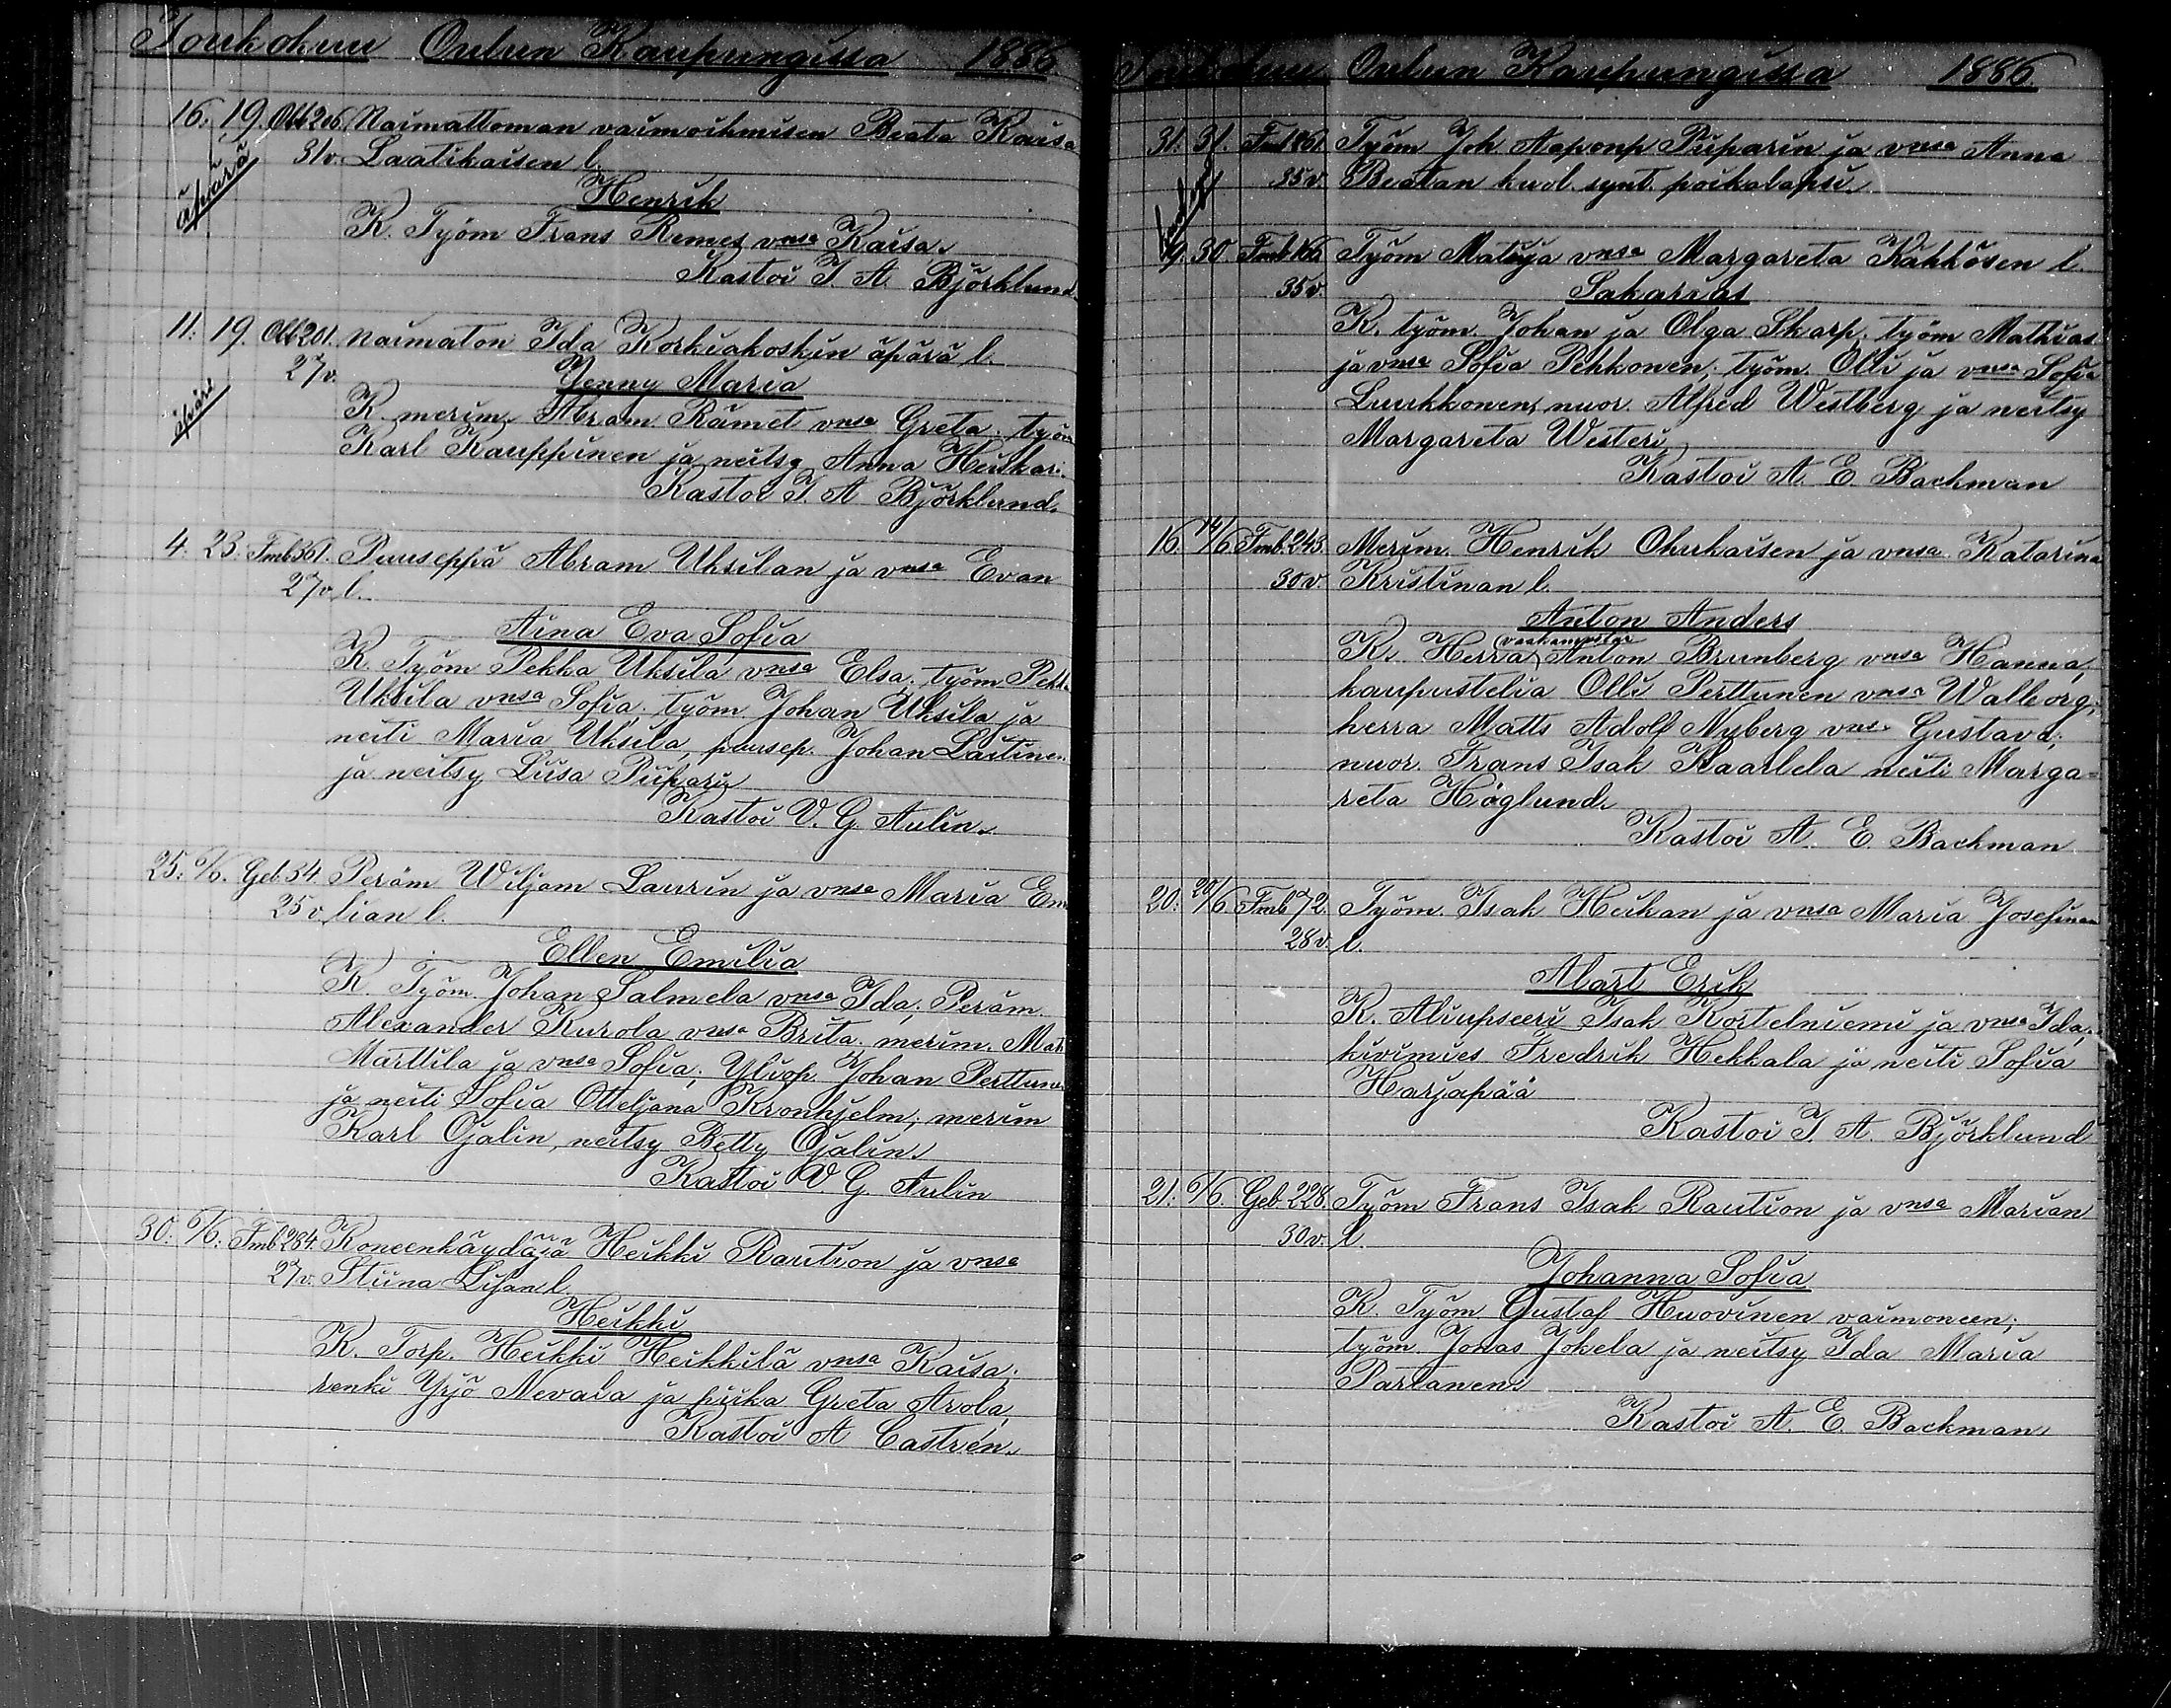 Toukokuu Oulun Kaupungissa 1886
16. 19. Obb 206. Naimattoman vaimoihmisen Beata Kaisa
äpärä 31v. Laatikaisen l.
Henrik
K. Työm Frans Remes vnsa Kaisa.
Kastoi I. A. Björklund
11. 19. Obb 201. Naimaton Ida Korkiakoskin äpärä l.
27v.
Jenny Maria
äpärä K. merim. Abram Rämet vnsa Greta. työm
Karl Kauppinen ja neitsy Anna Heikkari.
Kastoi I. A Björklund.
4. 23. Fmb 361. Puuseppä Abram Uksilan ja vnsa Evan
27v. l.
Aina Eva Sofia
K. Työm Pekka Uksila vnsa Elsa. työm Pekk.
Uksila vnsa Sofia. työm Johan Uksila ja
neiti Maria Uksila, puusep. Johan Laitinen
ja neitsy Liisa Piipari
Kastoi V. G. Aulin.
25. 6/6. Geb. 34. Peräm Wiljam Laurin ja vnsa Maria Em
25 v. lian l.
Ellen Emilia
K Työm. Johan Salmela vnsa Ida; Peräm.
Alexander Kurola vnsa Brita. merim. Mat
Marttila ja vnsa Sofia; Yliop. Johan Perttunen
ja neiti Sofia Otteljana Kronhjelm; merim
Karl Ojalin, neitsy Betty Ojalin.
Kastoi V. G. Aulin
30. 6/6. Fmb 284. Koneenkäydäjä Heikki Raution ja vnsa
27v. Stiina Lisan l.
Heikki
K. Torp. Heikki Heikkilä vnsa Kaisa;
renki Yrjö Nevala ja piika Greta Arola,
Kastoi A Castrén.
Toukokuu Oulun Kaupungissa 1886
31. 31. Fmb 161. Työm Joh Aaponp Piiparin ja vnsa Anna
35v. Beatan kuol. synt. poikalapsi.
19. 30 Fmb 166 Työm Matin ja vnsa Margareta Kakkösen l.
35v. Sakarias
K. työm. Johan ja Olga Skarp. työm Mathias
ja vnsa Sofia Pehkonen; työm. Olli ja vnsa Sofia
Luukkonen, nuor. Alfred Westberg ja neitsy
Margareta Westeri
Kastoi A. E. Backman
16. 14/6 Fmb. 243. Merim. Henrik Ohukaisen ja vnsa Katarina
30v. Kristinan l.
Anton Anders
K. Herra Anton Brunberg vnsa Hanna,
kaupustelia Olli Perttunen vnsa Walborg;
herra Matts Adolf Nyberg vnsa Gustava;
nuor. Frans Isak Kaarlela neiti Marga=
reta Höglund.
Kastoi A. E. Backman
20. 20/6 Fmb 72. Työm. Isak Heikan ja vnsa Maria Josefinan
28v. l.
Abart Erik
K. Aliupseeri Isak Kortelniemi ja vnsa Ida;
kivimies Fredrik Hekkala ja neiti Sofia
Harjapää
Kastoi I. A. Björklund
21. 6/6. Geb. 228. Työm Frans Isak Raution ja vnsa Marian
30v. l.
Johanna Sofia
K. Työm Gustaf Huovinen vaimoneen;
työm. Jonas Jokela ja neitsy Ida Maria
Partanen.
Kastoi A. E. Backman